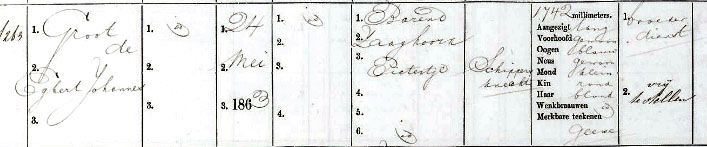 1263
1. Groot
de
2.
Egbert Johannes
3.
1.
2.
3.
1. 24
2. Mei
3. 1863
1.
2.
3.
4.
1. Barend
2. Laaghoven
3. Pietertje
4.
5.
6.
Schippers
knecht
1742 millimeters.
Aangezigt lang
Voorhoofd gewoon
Oogen blauw
Neus gewoon
Mond klein
Kin rond
Haar blond
Wenkbraauwen
Merkbare teekenen
Geene
1. broeder
dienst
2. vrij
te stellen